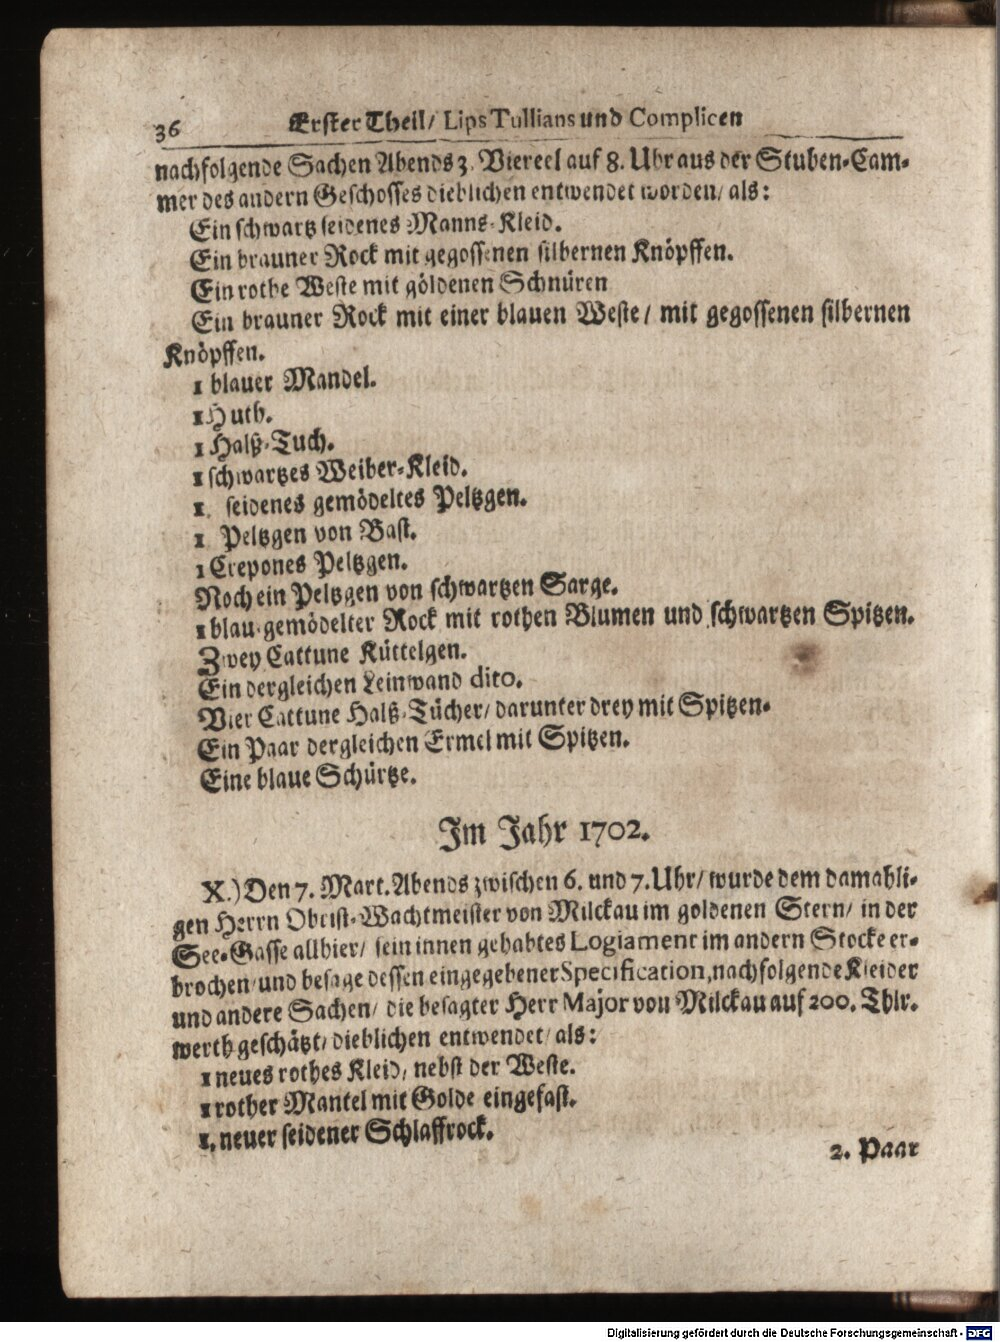 36 Erster Theil/ Lips Tullians und Complicen
nachfolgende Sachen Abends 3. Viertel auf 8. Uhr aus der Stuben-Cam-
mer des andern Geschosses dieblichen entwendet worden/ als:
Ein schwartz seidenes Manns-Kleid.
Ein brauner Rock mit gegossenen silbernen Knöpffen.
Ein rothe Weste mit göldenen Schnüren
Ein brauner Rock mit einer blauen Weste/ mit gegossenen silbernen
Knöpffen.
1 blauer Mandel.
1 Huth.
1 Halß-Tuch.
1 schwartzes Weiber-Kleid.
1. seidenes gemödeltes Peltzgen.
1 Peltzgen von Bast.
1 Crepones Peltzgen.
Noch ein Peltzgen von schwartzen Sarge.
1 blau-gemödelter Rock mit rothen Blumen und schwartzen Spitzen.
Zwey Cattune Küttelgen.
Ein dergleichen Leinwand dito.
Vier Cattune Halß-Tücher/ darunter drey mit Spitzen.
Ein Paar dergleichen Ermel mit Spitzen.
Eine blaue Schürtze.
Im Jahr 1702.
X.) Den 7. Mart. Abends zwischen 6. und 7. Uhr/ wurde dem damahli-
gen Herrn Obrist-Wachtmeister von Milckau im goldenen Stern/ in der
See-Gasse allhier/ sein innen gehabtes Logiament im andern Stocke er-
brochen/ und besage dessen eingegebener Specification, nachfolgende Kleider
und andere Sachen/ die besagter Herr Major von Milckau auf 200. Thlr.
werth geschätzt/ dieblichen entwendet/ als:
1 neues rothes Kleid/ nebst der Weste.
1 rother Mantel mit Golde eingefast.
1. neuer seidener Schlaffrock.
2. Paar
Digitalisierung gefördert durch die Deutsche Forschungsgemeinschaft - DFG